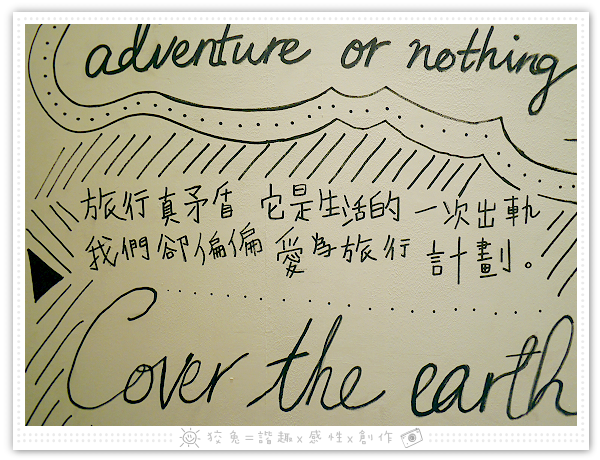 adventure or nothing
旅行真矛盾 它是生活的一次出軌
我們卻偏偏愛為旅行計劃。
Cover the earth
狡兔=諧趣x感性x創作